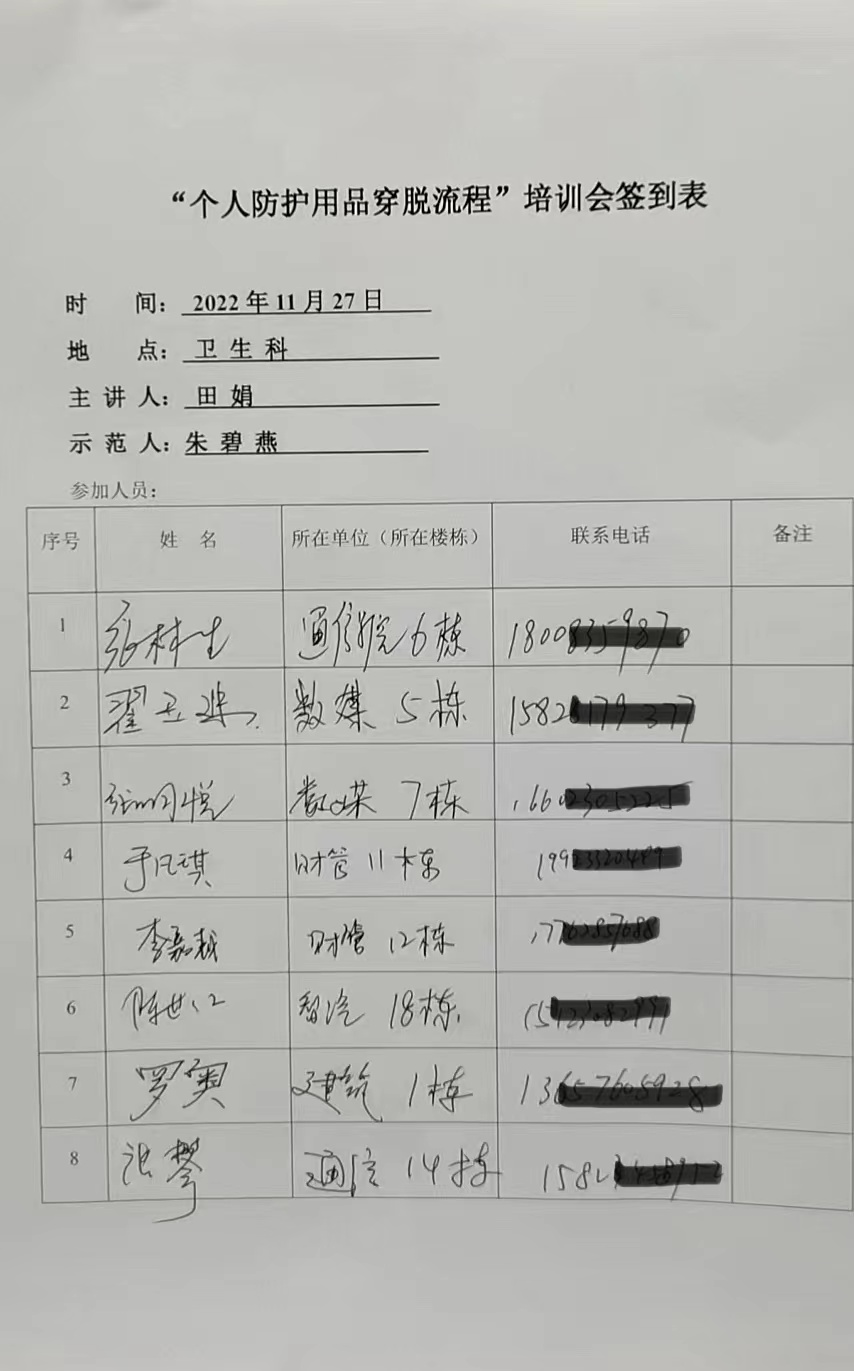 “个人防护用品穿脱流程”培训会签到表
时 间： 2022 年 11 月 27 日
地 点： 卫 生 科
主 讲 人： 田 娟
示 范 人： 朱 碧 燕
参加人员：
序号 姓 名 所在单位（所在楼栋） 联系电话 备注
1 张林生 通信院 6 栋
2 翟玉 数媒 5 栋
3 悦 数媒 7 栋
4 于凡琪 财管 11 栋
5 李嘉 财管 12 栋
6 陈世 智汽 18栋
7 罗奥 建筑 1 栋
8 张攀 通信 14 栋